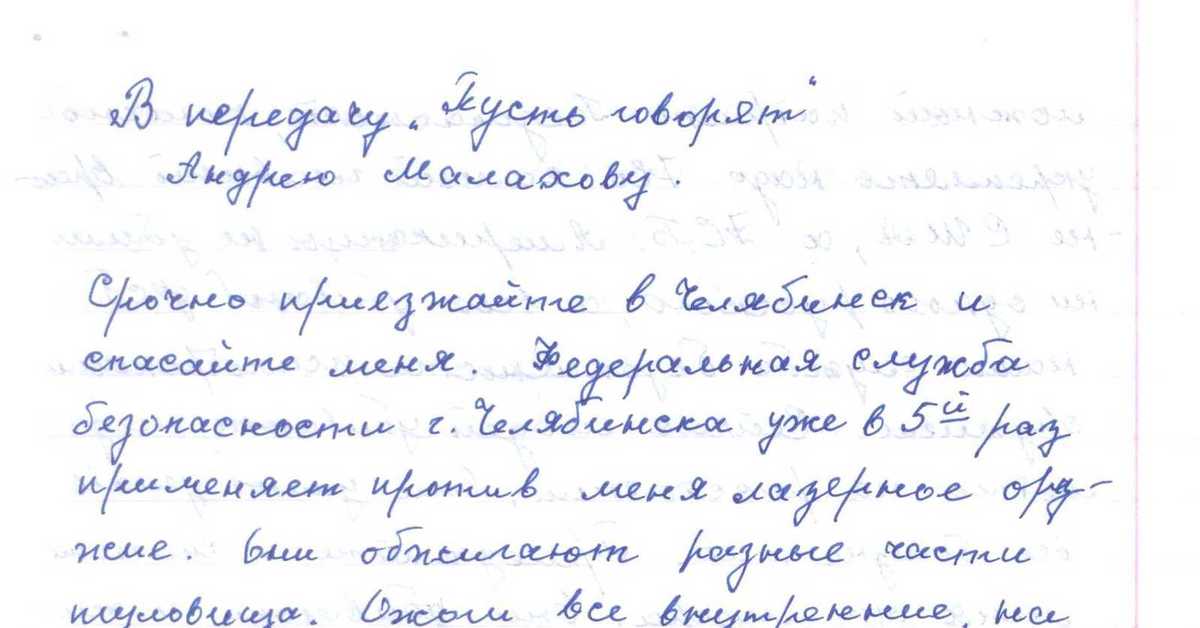 В передачу „Пусть говорят“
Андрею Малахову.
Срочно приезжайте в Челябинск и
спасайте меня. Федеральная служба
безопасности г. Челябинска уже в 5й раз
применяет против меня лазерное ору-
жие. Они обжигают разные части
туловища. Ожоги все внутренние, на